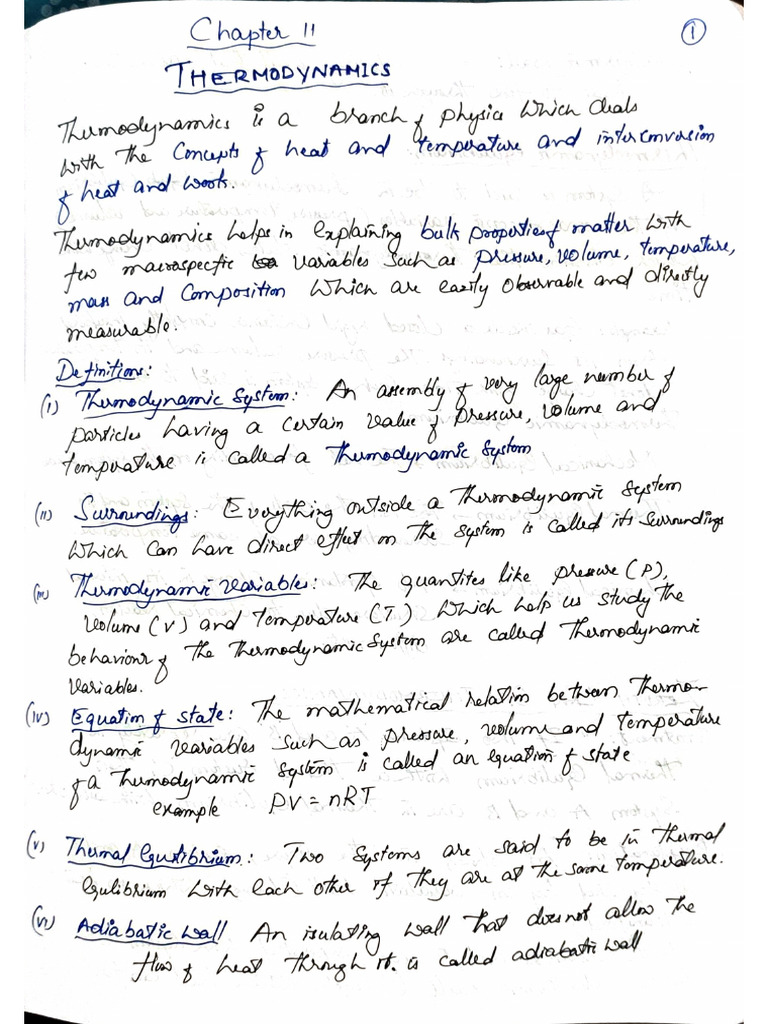 Chapter 11
①
THERMODYNAMICS
Thermodynamics is a branch of physics which deals
with the concepts of heat and temperature and interconversion
of heat and work.
Thermodynamics helps in explaining bulk properties of matter with
few macrospecfic variables such as pressure, volume, temperature,
mass and composition which are easily observable and directly
measurable.
Definitions:
(i) Thermodynamic System: An assembly of very large number of
particles having a certain value of pressure, volume and
temperature is called a Thermodynamic System
(ii) Surroundings: Everything outside a Thermodynamic System
which can have direct effect on the system is called its surroundings
(iii) Thermodynamic variables: The quantites like pressure (P),
volume (V) and temperature (T) which help us study the
behaviour of the Thermodynamic System are called Thermodynamic
variables.
(iv) Equation of state: The mathematical relation between Thermo-
dynamic variables such as pressure, volume and temperature
of a Thermodynamic System is called an equation of state
example PV = nRT
(v) Thermal Equilibrium: Two systems are said to be in thermal
Equlibrium with each other if they are at the same temperature.
(vi) Adiabatic wall An insulating wall that does not allow the
flow of heat through it. is called adiabatic wall